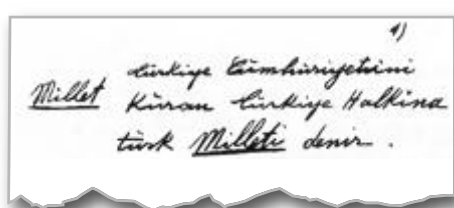 1)
türkiye Cümhuriyetini
Millet Kuran türkiye Halkına
türk Milleti denir.